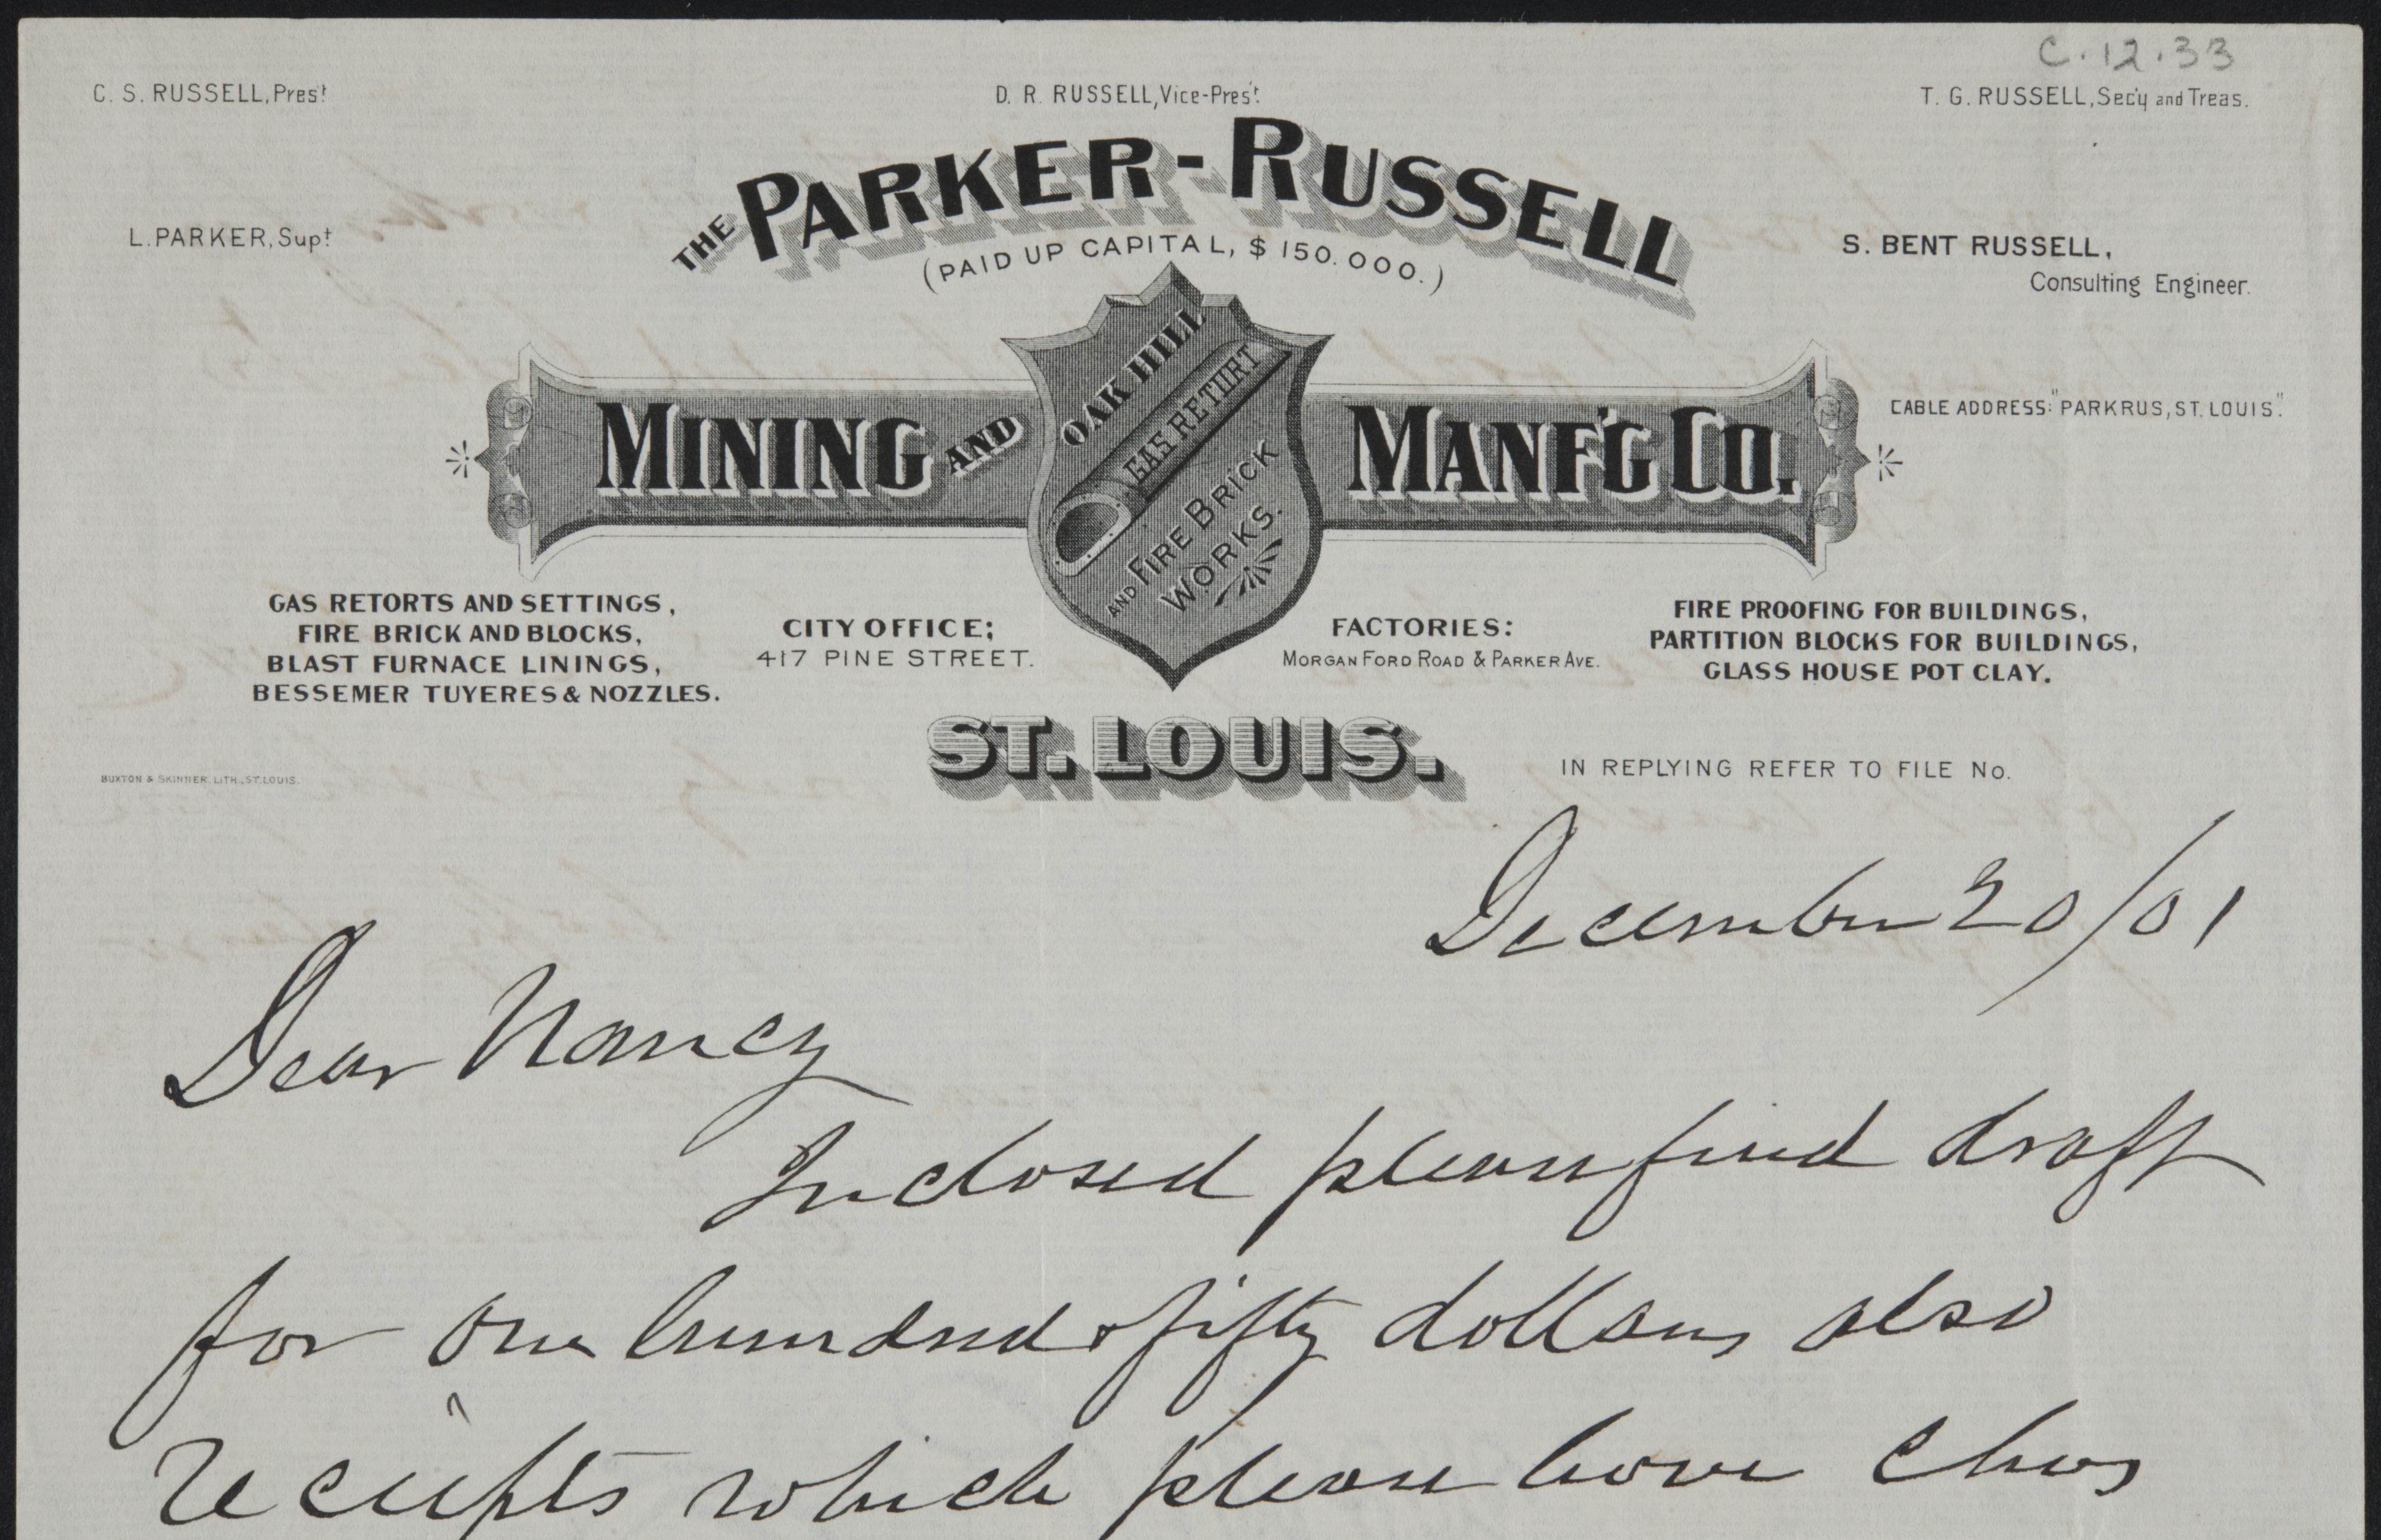 C. 12. 33
C. S. RUSSELL, Pres't
D. R. RUSSELL, Vice-Pres't.
T. G. RUSSELL, Sec'y and Treas.
L. PARKER, Supt
THE PARKER-RUSSELL
(PAID UP CAPITAL, $150.000.)
S. BENT RUSSELL,
Consulting Engineer.
MINING AND
OAK HILL
GAS RETORT
AND FIRE BRICK
WORKS.
MANF'G CO.
CABLE ADDRESS: "PARKRUS, ST. LOUIS".
GAS RETORTS AND SETTINGS,
FIRE BRICK AND BLOCKS,
BLAST FURNACE LININGS,
BESSEMER TUYERES & NOZZLES.
CITY OFFICE;
417 PINE STREET.
FACTORIES:
MORGAN FORD ROAD & PARKER AVE.
FIRE PROOFING FOR BUILDINGS,
PARTITION BLOCKS FOR BUILDINGS,
GLASS HOUSE POT CLAY.
ST. LOUIS.
BUXTON & SKINNER LITH., ST. LOUIS.
IN REPLYING REFER TO FILE No.
December 20/01
Dear Nancy
Inclosed please find draft
for one hundred & fifty dollars also
receipts which please have Chas